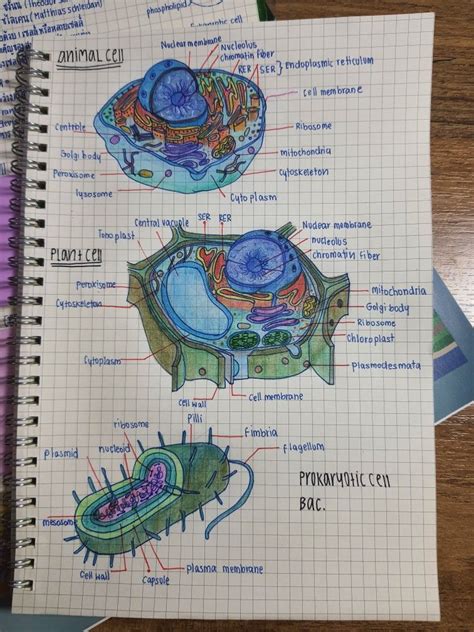 (Theodor
(Matthias schleidan)
phospholipid
cell
Animal cell
Nuclear membrane
Nucleolus
chromatin fiber
RER SER } Endoplasmic reticulum
Cell membrane
Centriole
Ribosome
Golgi body
mitochondria
Peroxisome
Cytoskeleton
lysosome
Cyto plasm
Plant cell
Tono plast
Central vacuole
SER
RER
Nuclear membrane
nucleolus
chromatin fiber
Peroxisome
mitochondria
Golgi body
Cytoskeleton
Ribosome
Chloroplast
Cytoplasm
Plasmodesmata
cell wall
Cell membrane
Pilli
ribosome
Fimbria
nucleoid
flagellum
plasmid
Prokaryotic cell
Bac.
mesosome
Cell wall
Capsule
plasma membrane